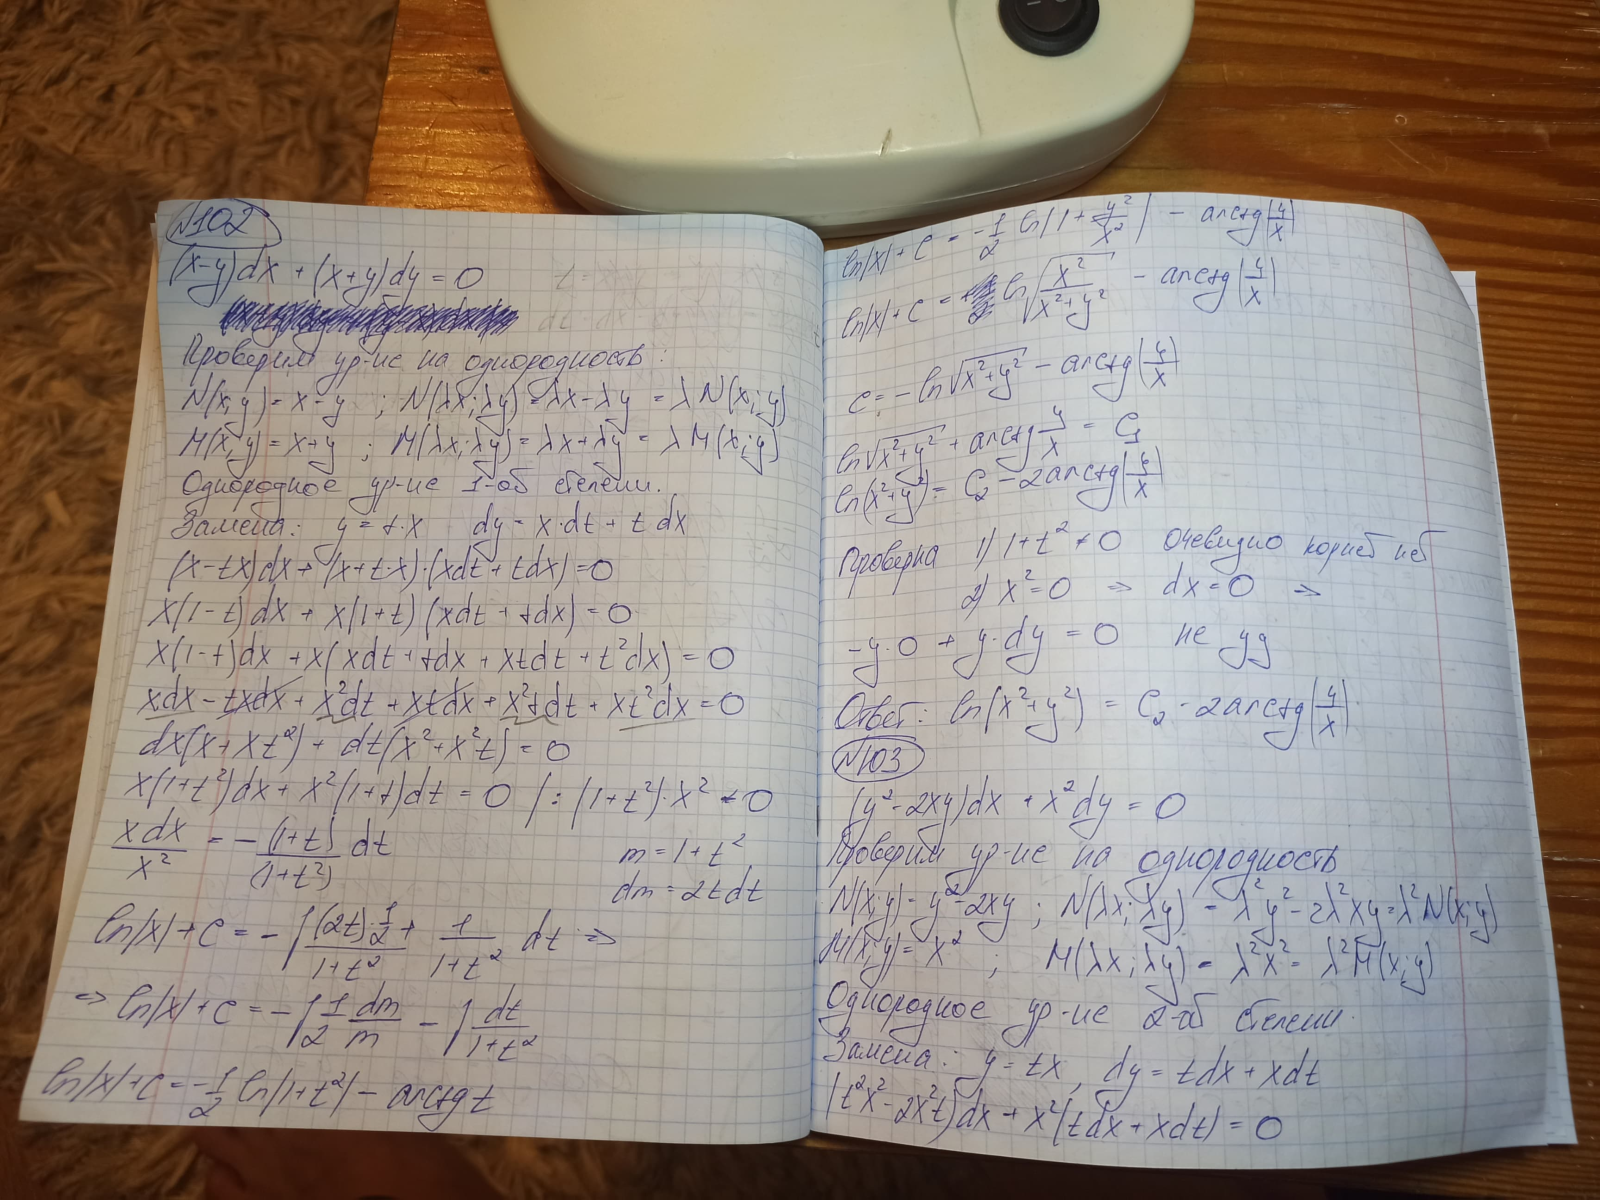 N102
(x-y)dx + (x+y)dy = 0
Проверим ур-ие на однородность:
N(x;y) = x-y ; N(λx;λy) = λx-λy = λN(x;y)
M(x;y) = x+y ; M(λx;λy) = λx+λy = λM(x;y)
Однородное ур-ие 1-ой степени.
Замена: y = t·x dy = x·dt + t dx
(x-tx)dx + (x+t·x)·(xdt + tdx) = 0
x(1-t)dx + x(1+t)(xdt + tdx) = 0
x(1-t)dx + x(xdt + tdx + xtdt + t²dx) = 0
xdx - txdx + x²dt + xtdx + x²tdt + xt²dx = 0
dx(x + xt²) + dt(x² + x²t) = 0
x(1+t²)dx + x²(1+t)dt = 0 |: (1+t²)·x² ≠ 0
xdx/x² = -(1+t)/(1+t²) dt m = 1+t²
dm = 2tdt
ln|x| + C = -∫ (2t)·1/2/(1+t²) + 1/(1+t²) dt =>
=> ln|x| + C = -∫ 1/2 dm/m - ∫ dt/(1+t²)
ln|x| + C = -1/2 ln|1+t²| - arctg t
ln|x| + C = -1/2 ln|1 + y²/x²| - arctg(y/x)
ln|x| + C = ln√(x²/(x²+y²)) - arctg(y/x)
C = -ln√(x²+y²) - arctg(y/x)
ln√(x²+y²) + arctg y/x = C₁
ln(x²+y²) = C₂ - 2arctg(y/x)
Проверка 1) 1+t² ≠ 0 очевидно корней нет
2) x² = 0 => dx = 0 =>
-y·0 + y·dy = 0 не уд
Ответ: ln(x²+y²) = C₂ - 2arctg(y/x)
N103
(y²-2xy)dx + x²dy = 0
Проверим ур-ие на однородность
N(x;y) = y²-2xy ; N(λx;λy) = λ²y²-2λ²xy = λ²N(x;y)
M(x;y) = x² ; M(λx;λy) = λ²x² = λ²M(x;y)
Однородное ур-ие 2-ой степени.
Замена: y = tx, dy = tdx + xdt
(t²x² - 2x²t)dx + x²(tdx + xdt) = 0